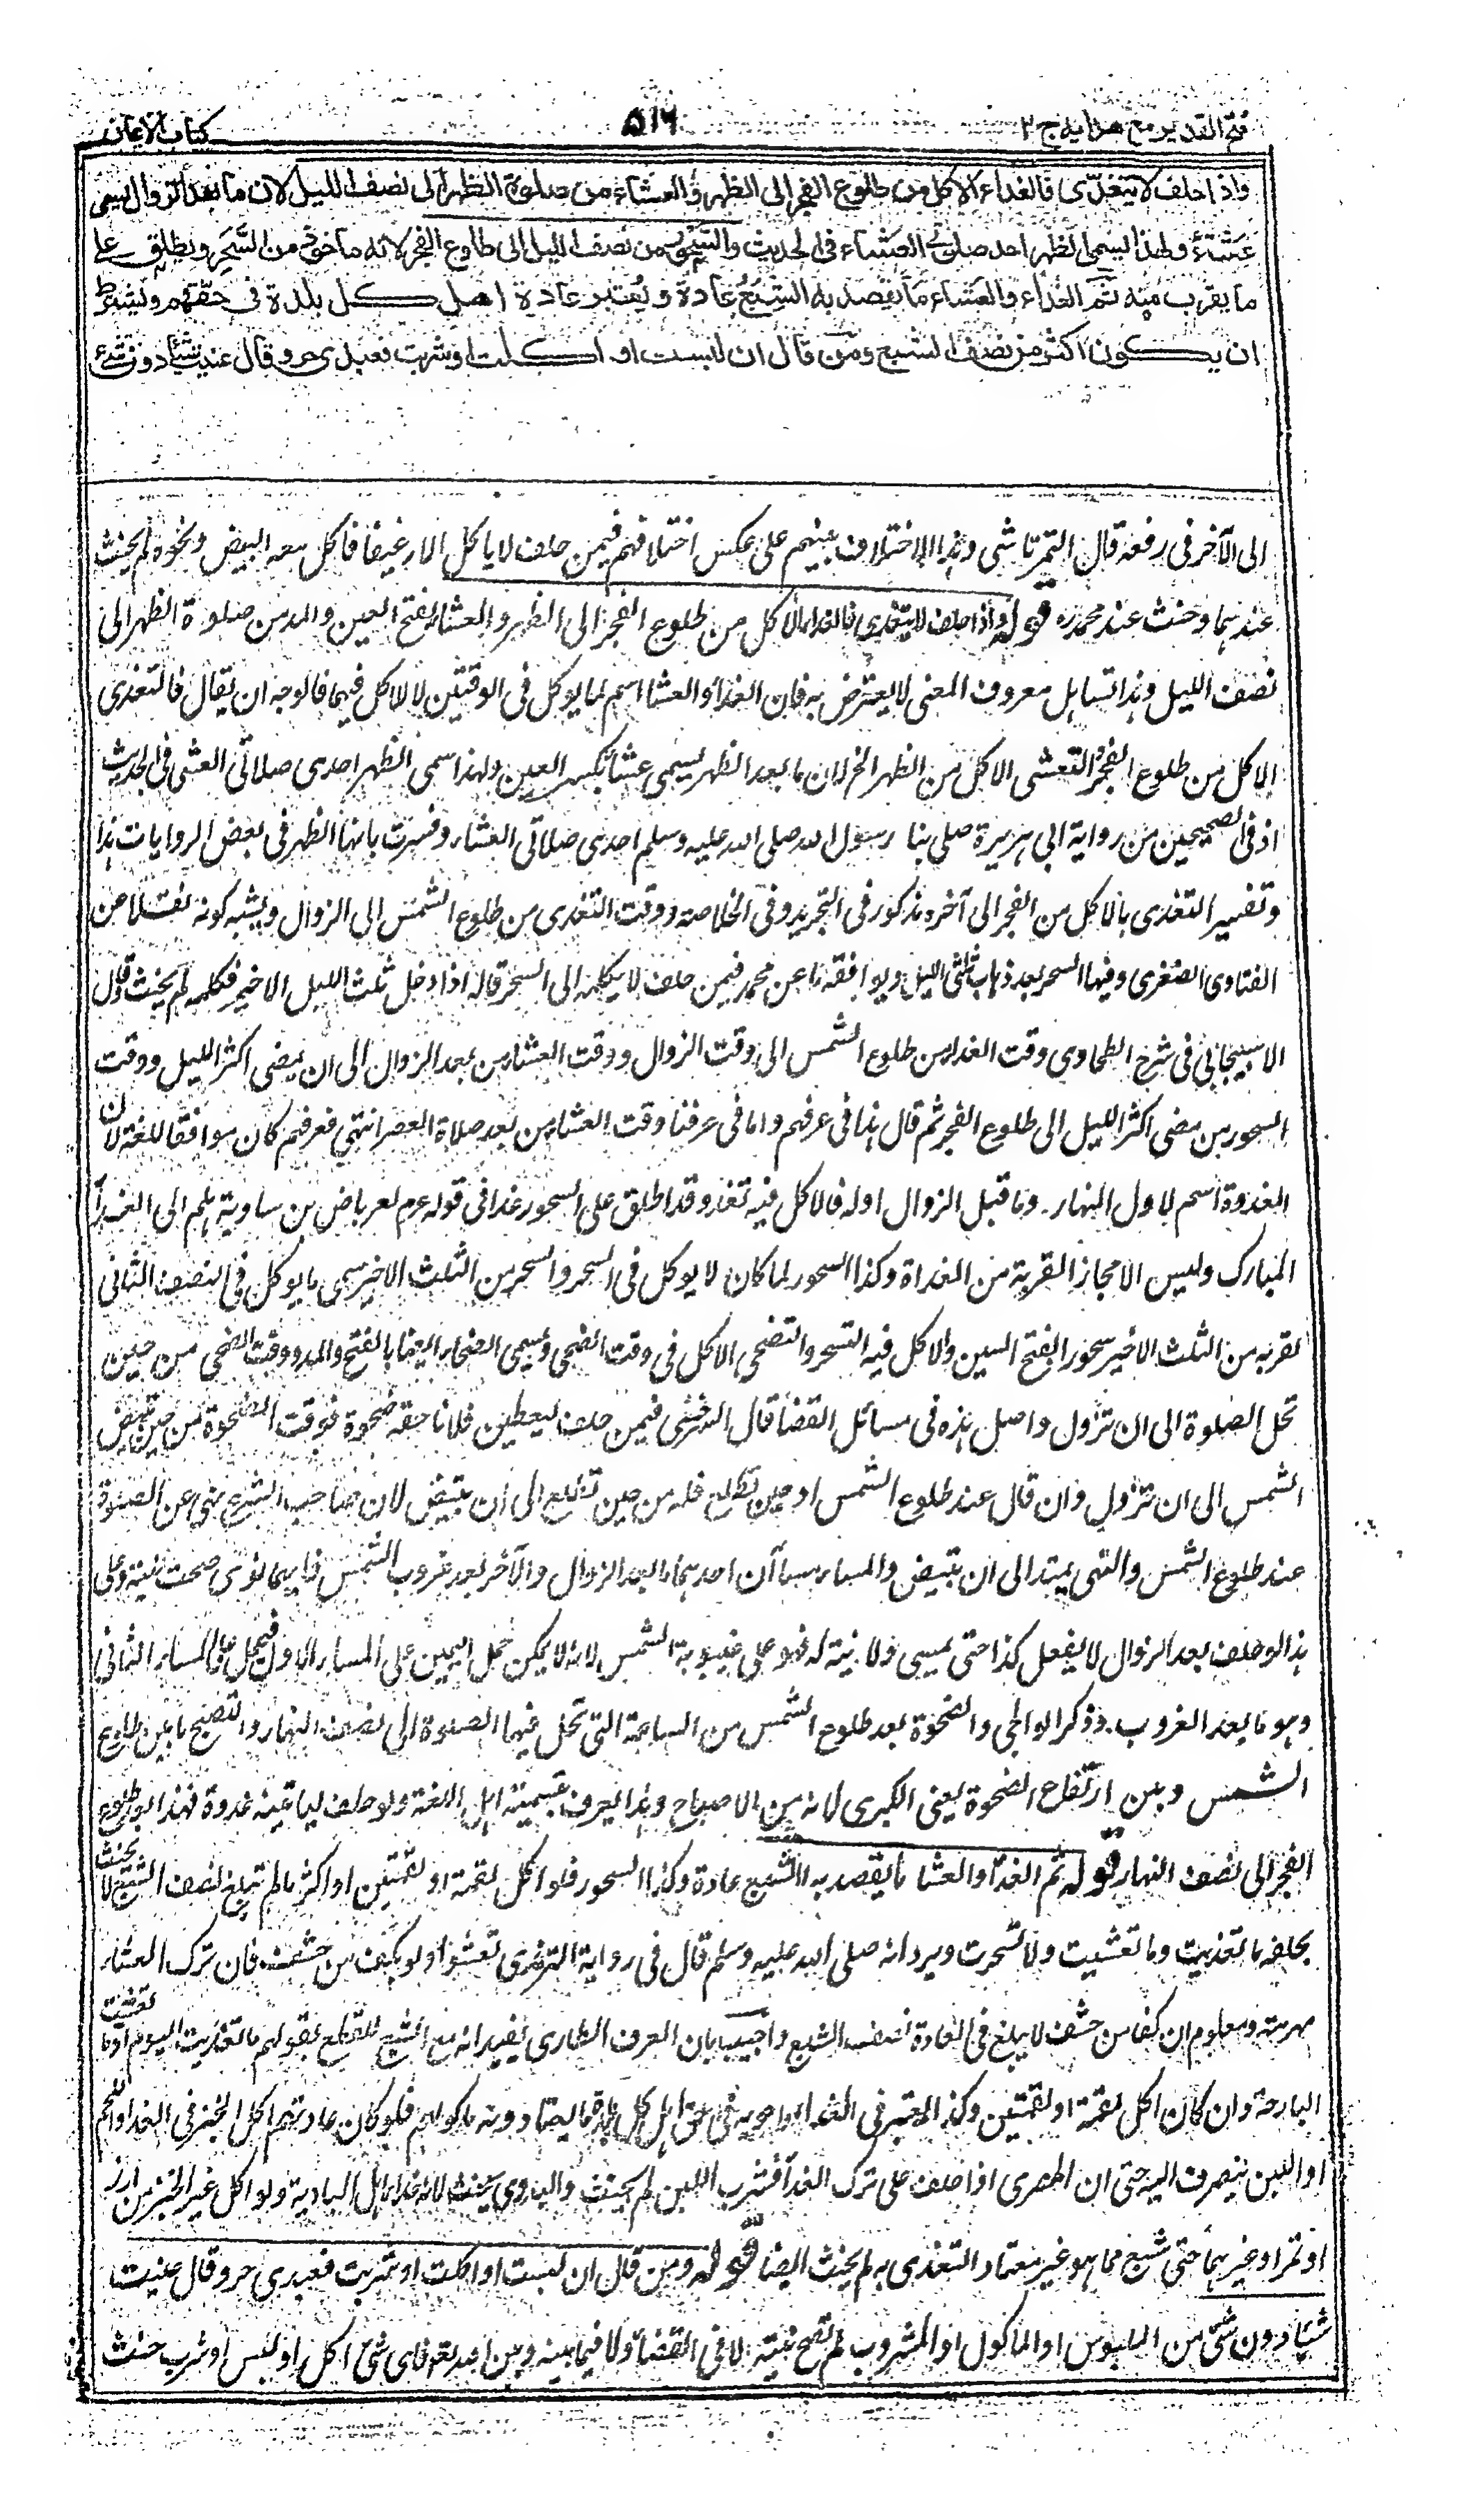 فتح القدير مع هدايه ج ٢
٥١٦
كتاب الايمان
واذا حلف لا يتغدّى فالغداء الاكل من طلوع الفجر الى الظهر والعشاء من صلوة الظهر الى نصف الليل لان ما بعد الزوال يسمى
عشاءً ولهذا يسمى الظهر احد صلوتي العشاء في الحديث والسحور من نصف الليل الى طلوع الفجر لانه ماخوذ من السَّحَر ويطلق على
ما يقرب منه ثم الغداء والعشاء ما يقصد به الشِبَعُ عادة ويُعتبر عادة اهل كل بلدة في حقهم ويشترط
ان يكون اكثر من نصف الشبع ومن قال ان لبست او اكلت او شربت فعبدي حر وقال عنيت شيئا دون شيء
الى الآخر فى رفعه قال التمرتاشى وهذا الاختلاف بينهم على عكس اختلافهم فيمن حلف لا ياكل الا رغيفا فاكل معه البيض ونحوه لم يحنث
عندهما وحنث عند محمد ره قوله واذا حلف لا يتغدى فالغداء الاكل من طلوع الفجر الى الظهر والعشاء بفتح العين والمد من صلوة الظهر الى
نصف الليل وهذا تساهل معروف المعنى لا يعترض به فان الغداء والعشاء اسم لما يوكل فى الوقتين لا الاكل فيهما فالوجه ان يقال فالتغدى
الاكل من طلوع الفجر والتعشى الاكل من الظهر الخ لان ما بعد الظهر يسمى عشاء بكسر العين ولهذا سمى الظهر احدى صلاتى العشى فى الحديث
اذ فى الصحيحين من رواية ابى هريرة صلى بنا رسول الله صلى الله عليه وسلم احدى صلاتى العشاء وفسرت بانها الظهر فى بعض الروايات هذا
وتفسير التغدى بالاكل من الفجر الى آخره مذكور فى التجريد وفى الخلاصة ووقت التغدى من طلوع الشمس الى الزوال ويشبه كونه نقلا من
الفتاوى الصغرى وفيها السحر بعد ذهاب ثلثى الليل ويوافقه ما عن محمد فيمن حلف لا يكلمه الى السحر قال اذا دخل ثلث الليل الاخير فكلمه لم يحنث وقال
الاسبيجابى فى شرح الطحاوى وقت الغداء من طلوع الشمس الى وقت الزوال ووقت العشاء من بعد الزوال الى ان يمضى اكثر الليل ووقت
السحور من مضى اكثر الليل الى طلوع الفجر ثم قال هذا فى عرفهم واما فى عرفنا وقت العشاء من بعد صلاة العصر انتهى فعرفهم كان موافقا للغة لان
الغدوة اسم لاول النهار وما قبل الزوال اوله فالاكل فيه تغد وقد اطلق على السحور غداء فى قوله عم لعرباض بن سارية هلم الى الغداء
المبارك وليس الا مجازا لقربه من الغداة وكذا السحور لما كان لا يوكل فى السحر والسحر من الثلث الاخير سمى ما يوكل فى النصف الثانى
لقربه من الثلث الاخير سحورا بفتح السين والاكل فيه التسحر والتضحى الاكل فى وقت الضحى ويسمى الضحاء ايضا بالفتح والمد ووقت الضحى من حين
تحل الصلوة الى ان تزول واصل هذه فى مسائل القضاء قال السرخسى فيمن حلف ليعطين فلانا حقه ضحوة فوقت الضحوة من حين تبيض
الشمس الى ان تزول وان قال عند طلوع الشمس او حين تطلع فله من حين تطلع الى ان تبيض لان صاحب الشرع نهى عن الصلوة
عند طلوع الشمس والنهى يمتد الى ان تبيض والمساء مساآن احدهما ما بعد الزوال والآخر بعد غروب الشمس فايهما نوى صحت نيته وعلى
هذا لو حلف بعد الزوال لا يفعل كذا حتى يمسى ولا نية له فهو على غيبوبة الشمس لانه لا يمكن حمل اليمين على المساء الاول فيحمل على المساء الثانى
وهو ما بعد الغروب وذكر الوالجى والضحوة بعد طلوع الشمس من الساعة التى تحل فيها الصلوة الى نصف النهار والتصبح ما بين طلوع
الشمس وبين ارتفاع الضحوة يعنى الكبرى لانه من الاصباح وهذا يعرف بتسمية اهل اللغة ولو حلف لياتينه غدوة فهذا بعد طلوع
الفجر الى نصف النهار قوله ثم الغداء والعشاء ما يقصد به الشبع عادة وكذا السحور فلو اكل لقمة او لقمتين او اكثر ما لم تبلغ نصف الشبع لا يحنث
بحلفه ما تغديت وما تعشيت ولا تسحرت ويرد انه صلى الله عليه وسلم قال فى رواية الترمذى تعشوا ولو بكف من حشف فان ترك العشاء
مهرمة ومعلوم ان كفا من حشف لا يبلغ فى العادة نصف الشبع واجيب بان العرف الطارى يفيد انه مع الشبع للقطع بقولهم ما تغديت اليوم او ما تعشيت
البارحة وان كان اكل لقمة او لقمتين وكذا المعتبر فى الغداء وغيره فى حق اهل كل بلدة ما يعتادونه ماكولهم فلو كان عادتهم اكل الخبز فى الغداء او اللحم
او اللبن ينصرف اليه حتى ان الحضرى اذا حلف على ترك الغداء فشرب اللبن لم يحنث والبدوى يحنث لانه غداء اهل البادية ولو اكل غير الخبز من ارز
او تمر او غيرهما حتى شبع مما هو غير معتاد التغدى به لم يحنث ايضا قوله ومن قال ان لبست او اكلت او شربت فعبدى حر وقال عنيت
شيئا دون شئ من الملبوس او الماكول او المشروب لم تصح نيته لا فى القضاء ولا فيما بينه وبين الله تعالى فاى شئ اكل او لبس او شرب حنث